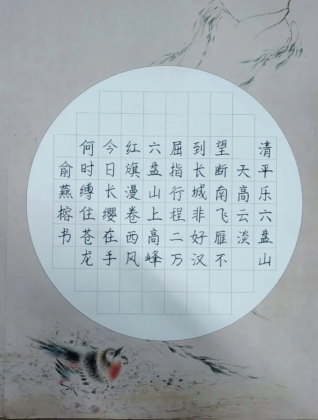 清平乐六盘山
天高云淡
望断南飞雁不
到长城非好汉
屈指行程二万
六盘山上高峰
红旗漫卷西风
今日长缨在手
何时缚住苍龙
俞燕榕书